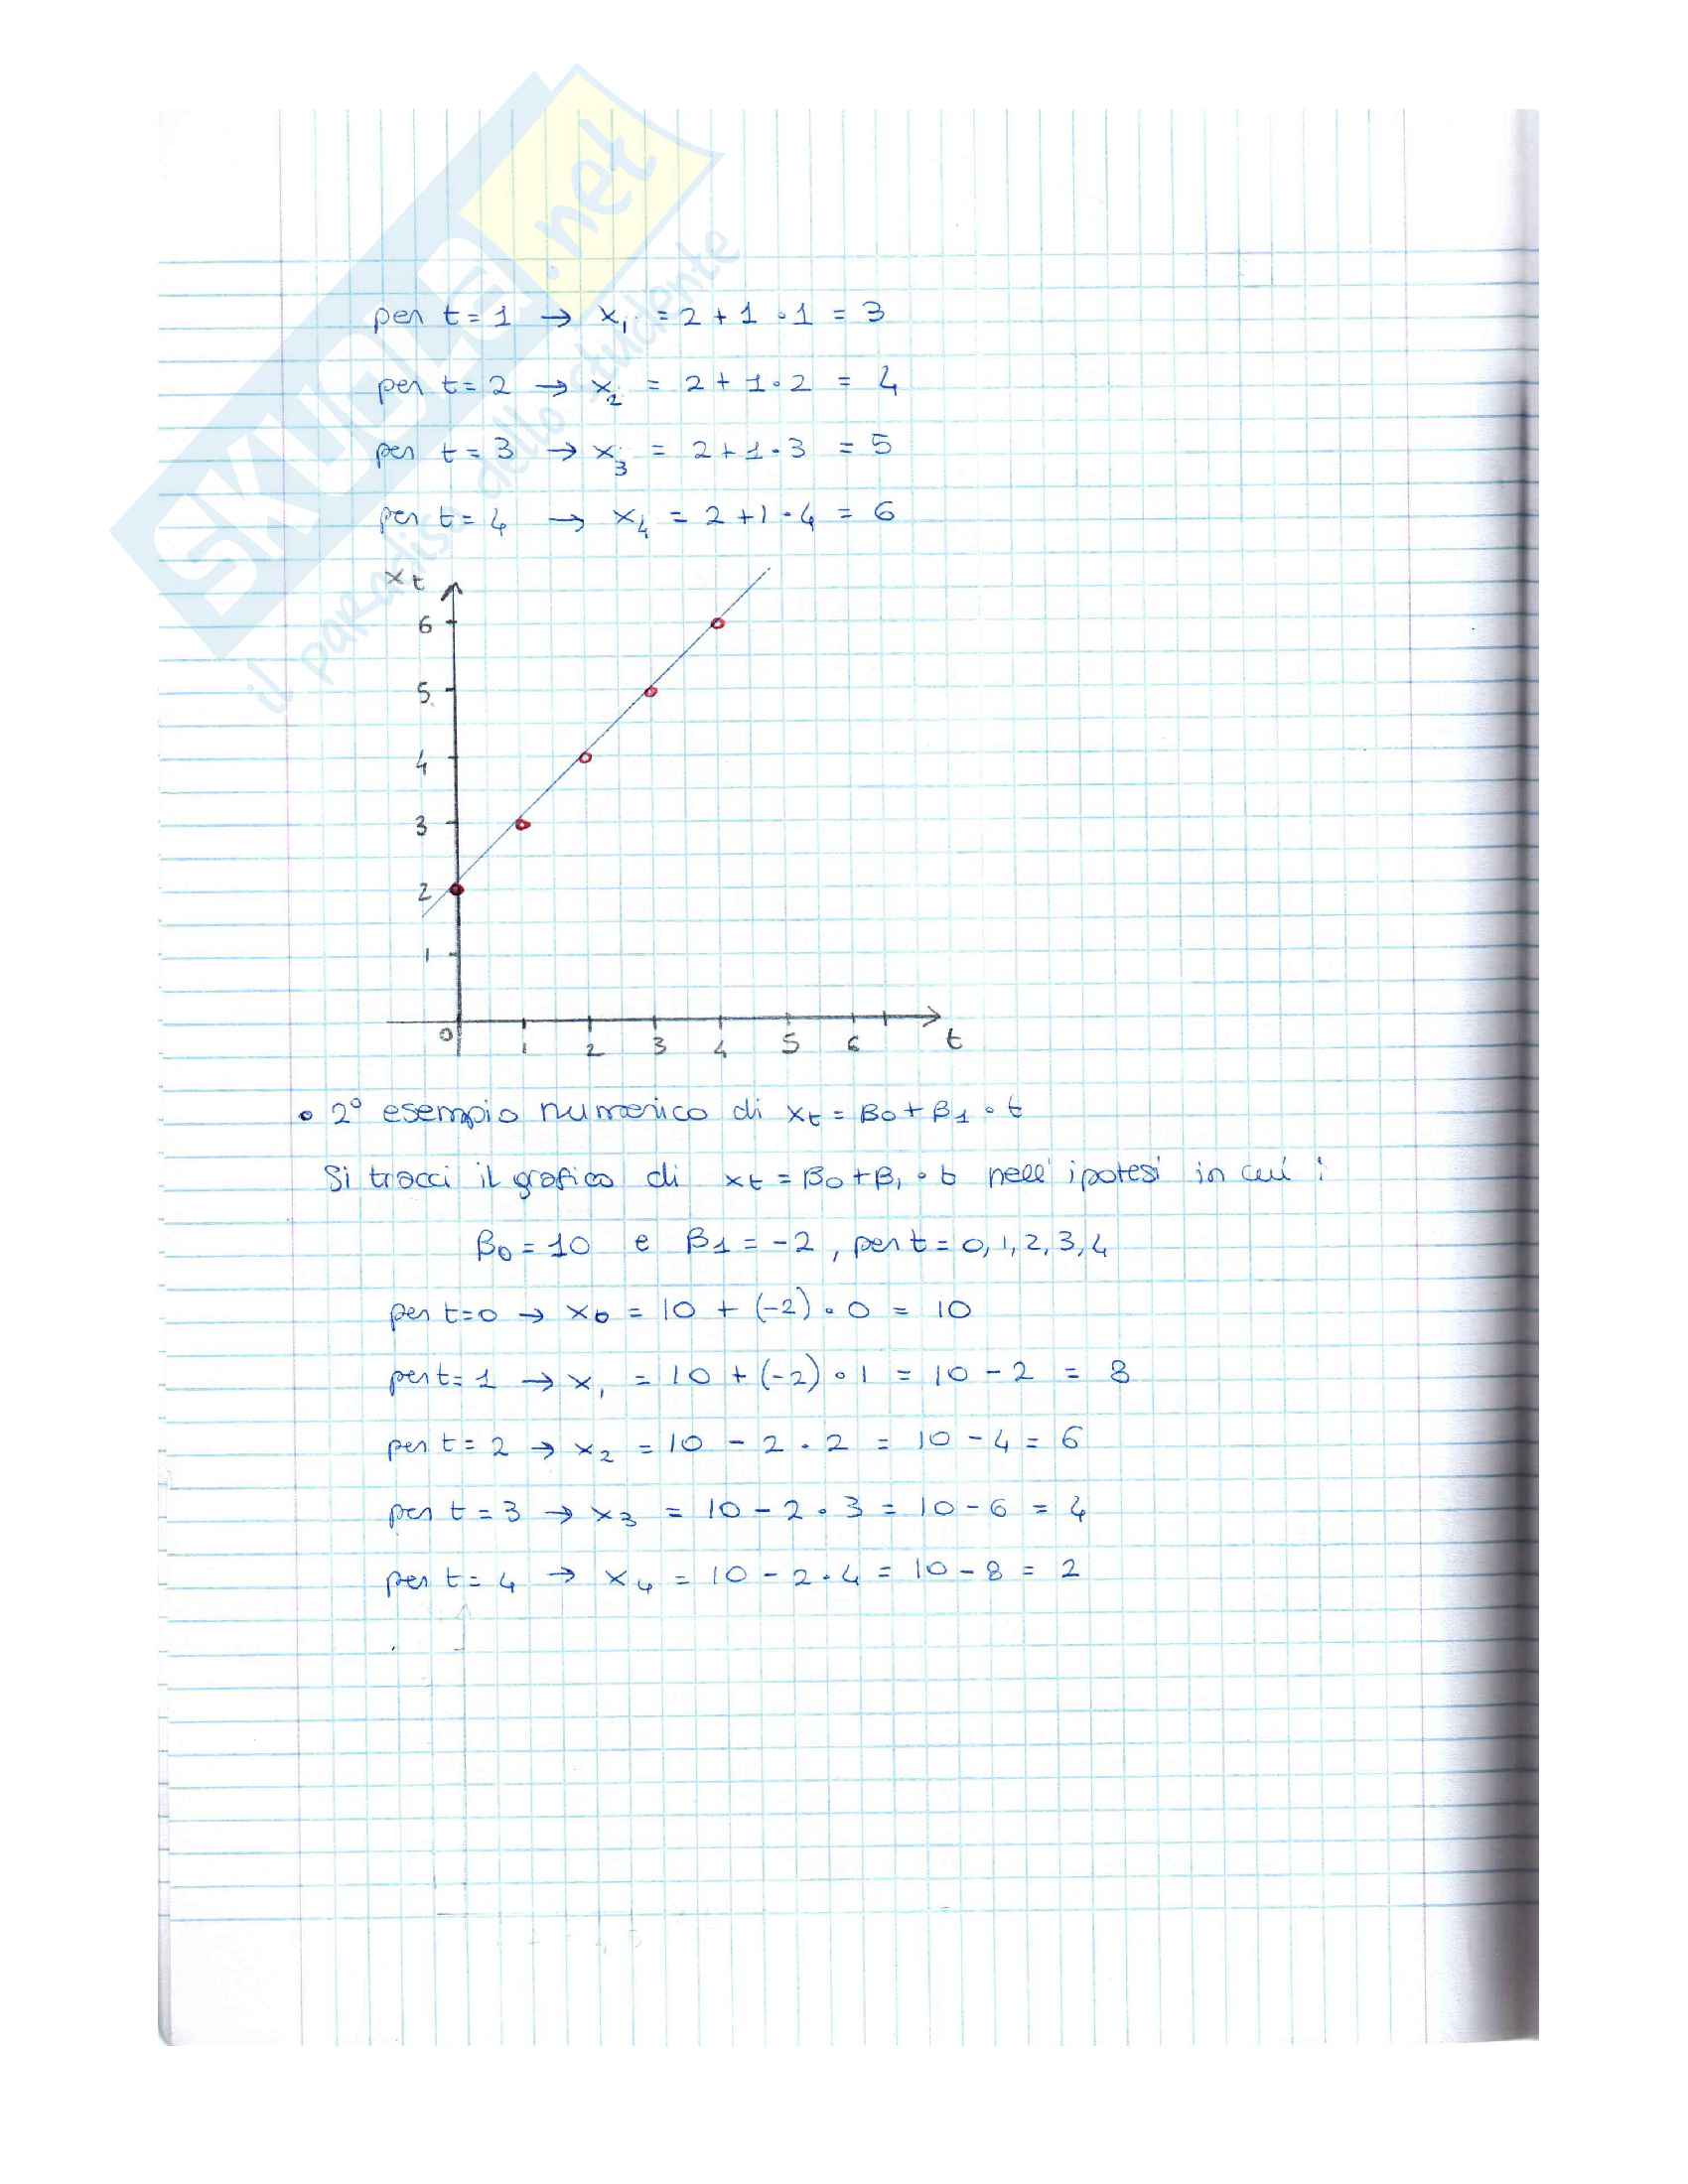 SKUOLA.net
il paradiso dello studente
per t = 1 → x₁ = 2 + 1 · 1 = 3
per t = 2 → x₂ = 2 + 1 · 2 = 4
per t = 3 → x₃ = 2 + 1 · 3 = 5
per t = 4 → x₄ = 2 + 1 · 4 = 6
xt
6
5
4
3
2
1
0 1 2 3 4 5 6 t
• 2° esempio numerico di xt = β0 + β1 · t
Si tracci il grafico di xt = β0 + β1 · t nell'ipotesi in cui :
β0 = 10 e β1 = -2, per t = 0, 1, 2, 3, 4
per t = 0 → x0 = 10 + (-2) · 0 = 10
per t = 1 → x₁ = 10 + (-2) · 1 = 10 - 2 = 8
per t = 2 → x₂ = 10 - 2 · 2 = 10 - 4 = 6
per t = 3 → x₃ = 10 - 2 · 3 = 10 - 6 = 4
per t = 4 → x₄ = 10 - 2 · 4 = 10 - 8 = 2